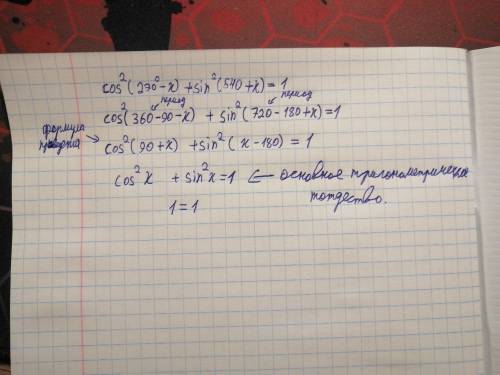 cos²(270°-x) + sin²(540+x) = 1
период период
cos²(360-90-x) + sin²(720-180+x) = 1
формула
cos²(90+x) + sin²(x-180) = 1
cos²x + sin²x = 1 ← основное тригонометрическое
тождество.
1 = 1